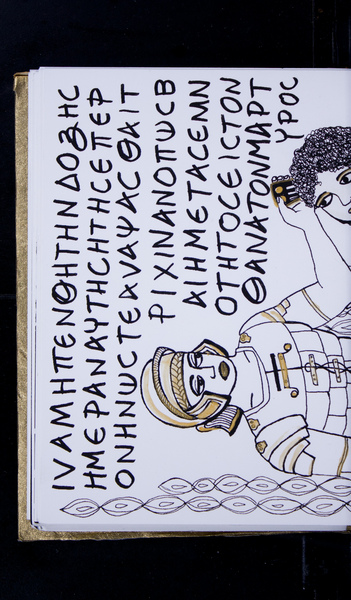 ΙΝΑΜΗΠΕΝΘΗΤΗΝΔΟΞΗϹ
ΗΜΕΡΑΝΑΥΤΗϹΗΤΗϹΕΠΕΡ
ΟΝΗΝωϹΤΕΑΝΑΨΑϹΘΑΙΤ
ΡΙΧΙΝΑΝΟΠωϹΒ
ΑΙΗΜΕΤΑϹΕΝΝ
ΟΤΗΤΟϹΕΙϹΤΟΝ
ΘΑΝΑΤΟΝΜΑΡΤ
ΥΡΟϹ